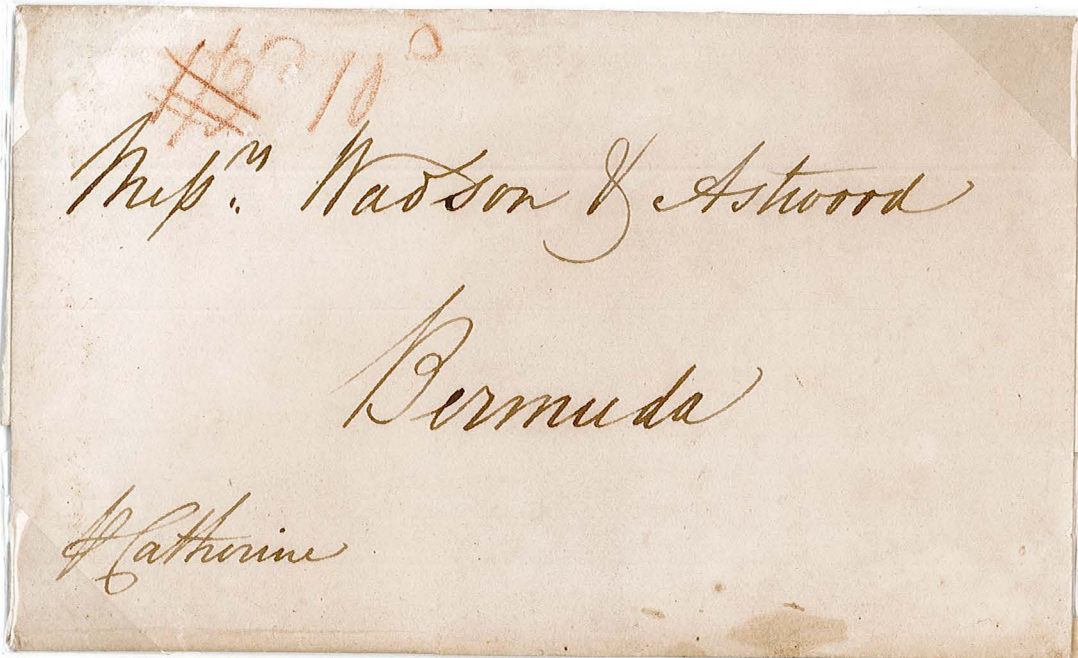 10
Messrs. Wadson & Astwood
Bermuda
p Catherine